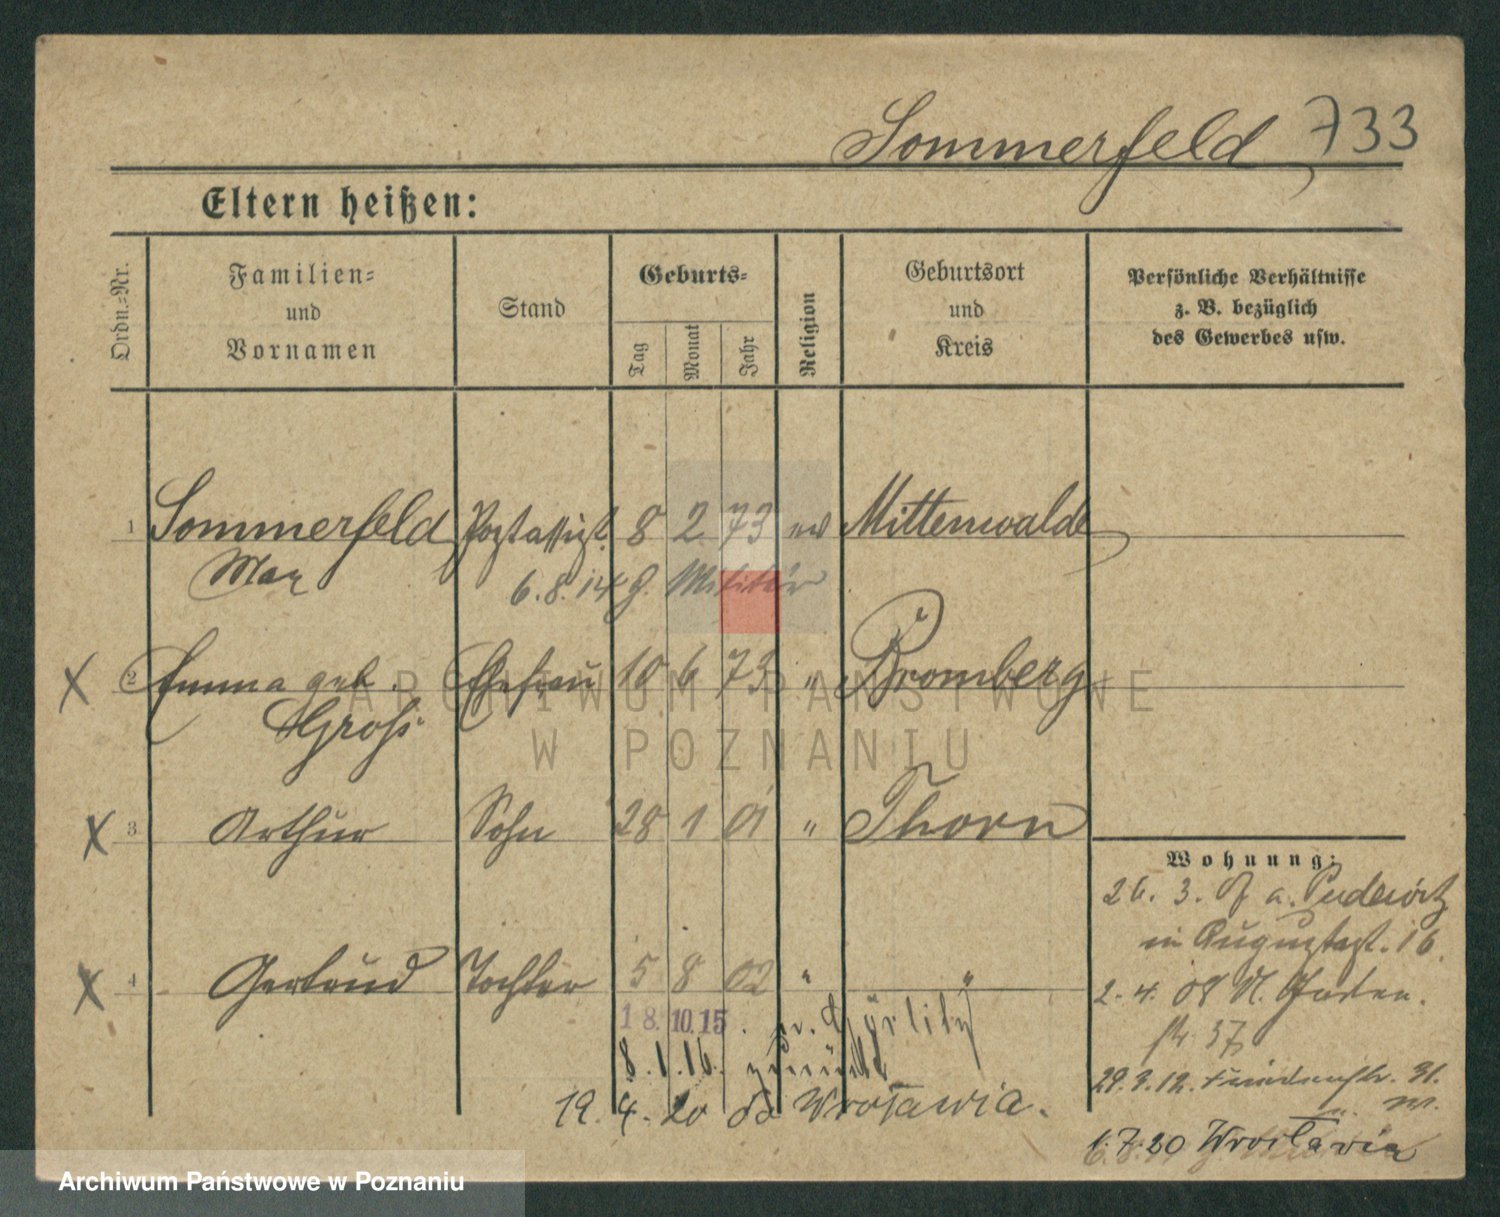 Sommerfeld 733
Eltern heißen:
Ordn.-Nr.
Familien-
und
Vornamen
Stand
Geburts-
Tag
Monat
Jahr
Religion
Geburtsort
und
Kreis
Persönliche Verhältnisse
z. B. bezüglich
des Gewerbes usw.
1 Sommerfeld Postassist. 8 2 73 ev Mittenwalde
Max
6.8.14 z. Militär
x 2 Emma geb. Ehefrau 10 6 73 " Bromberg
Groß
x 3 Arthur Sohn 28 1 01 " Thorn
x 4 Gertrud Tochter 5 8 02 " "
18.10.15. n. Görlitz
8.1.16. zurück
19.4.20 do Wrocławia.
Wohnung:
26.3. a. Pudewitz
in Augustast. 16.
2.4.08 N. Garten
str 37
29.3.12.
1.7.20 Wrocławia
ARCHIWUM PAŃSTWOWE
W POZNANIU
Archiwum Państwowe w Poznaniu